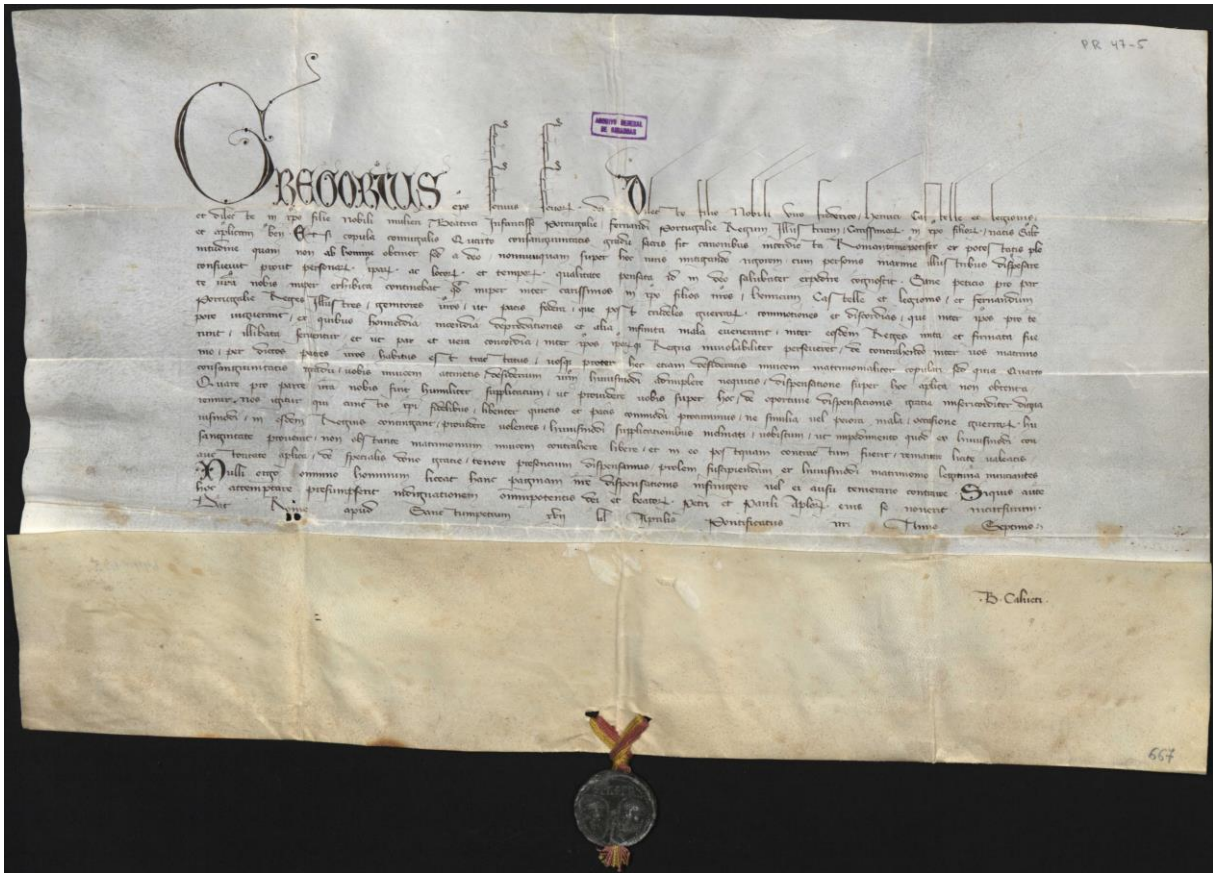 PR 47-5
ARCHIVO GENERAL
DE SIMANCAS
GREGORIUS eps servus servor dei Dilecto filio Nobili viro Frederico, Henrici Castelle et legionis,
et dilecte in xpo filie nobili mulieri Beatrici Infantisse Portugalie Fernandi Portugalie Regum Illustrium, Carissimor in xpo filior, natis Salt
et aplicam ben Etsi copula coniugalis Quarto consanguinitatis gradu satis sit canonibus interdicta Romanus pontifex ex potestatis ple
nitudine quam non ab homine obtinet sed a deo, nonnunquam super hoc iuris mitigando rigorem, cum personis maxime illustribus dispensare
consuevit prout personar, ipar, ac locor, et tempor, qualitate pensata id in deo salubriter expedire cognoscit. Sane peticio pro par
te vra nobis nuper exhibita continebat qd nuper inter carissimos in xpo filios nros, henricum Castelle et legionis, et fernandum
Portugalie Reges Illustres, genitores vros, ut pacis federa, que post crudeles guerrar, commotiones et discordias, que inter ipos pro te
pore viguerant, ex quibus homicidia incendia depredationes et alia infinita mala evenerant, inter eosdem Reges inita et firmata fue
runt, illibata serventur, et ut pax et vera concordia, inter ipos iparq Regna inviolabiliter perseveret, de contrahendo inter vos matrimo
nio, per dictos patres vros habitus est tractatus, vosq propter hec etiam desideratis invicem matrimonialiter copulari sed quia Quarto
consanguinitatis gradu, vobis invicem attinetis desiderium vrm huiusmodi adimplere nequitis, dispensatione super hoc aplica non obtenta
Quare pro parte vra nobis fuit humiliter supplicatum, ut providere vobis super hoc, de oportune dispensationis gratia misericorditer digna
remur, Nos igitur qui cunctis xpi fidelibus, libenter quietis et pacis commoda procuramus, ne similia vel peiora mala, occasione guerrar, hu
iusmodi, in eisdem Regnis contingant, providere volentes, huiusmodi supplicationibus inclinati, vobiscum, ut impedimento quod ex huiusmodi con
sanguinitate provenit, non obstante matrimonium invicem contrahere libere, et in eo postquam contractum fuerit, remanere licite valeatis
auctoritate aplica, de specialis dono gratie, tenore presentium dispensamus, prolem suscipiendam ex huiusmodi matrimonio legitimam nuntiantes
Nulli ergo omnino hominum liceat hanc paginam nre dispensationis infringere vel ei ausu temerario contraire Siquis aute
hoc attemptare presumpserit indignationem omnipotentis dei et beator Petri et Pauli Aplor eius se noverit incursurum.
Dat Rome apud Sanctumpetrum xvii kl Aprilis Pontificatus nri Anno Septimo
B. Calueti.
667